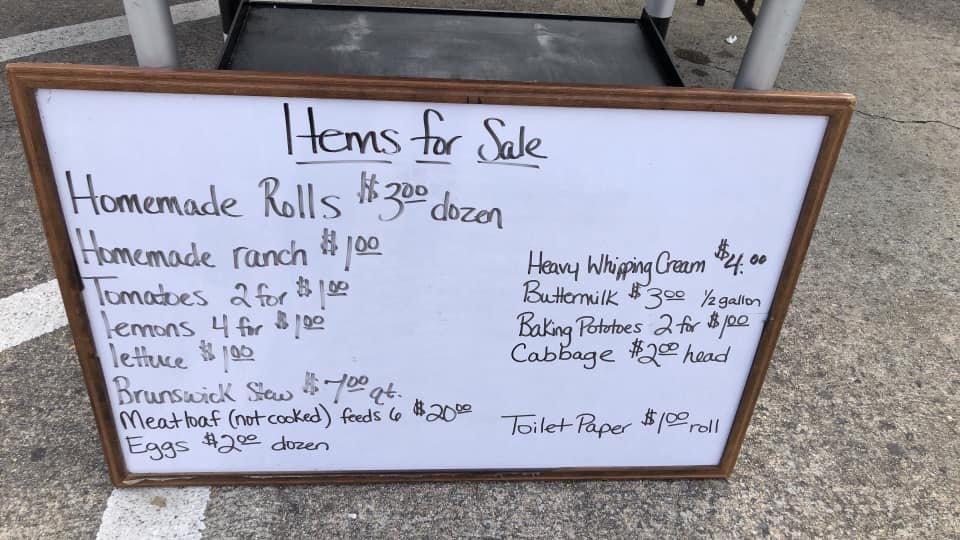 Items for Sale
Homemade Rolls $3.00 dozen
Homemade ranch $1.00
Tomatoes 2 for $1.00
lemons 4 for $1.00
lettuce $1.00
Brunswick Stew $7.00 qt.
Meatloaf (not cooked) feeds 6 $20.00
Eggs $2.00 dozen
Heavy Whipping Cream $4.00
Buttermilk $3.00 1/2 gallon
Baking Pototoes 2 for $1.00
Cabbage $2.00 head
Toilet Paper $1.00 roll